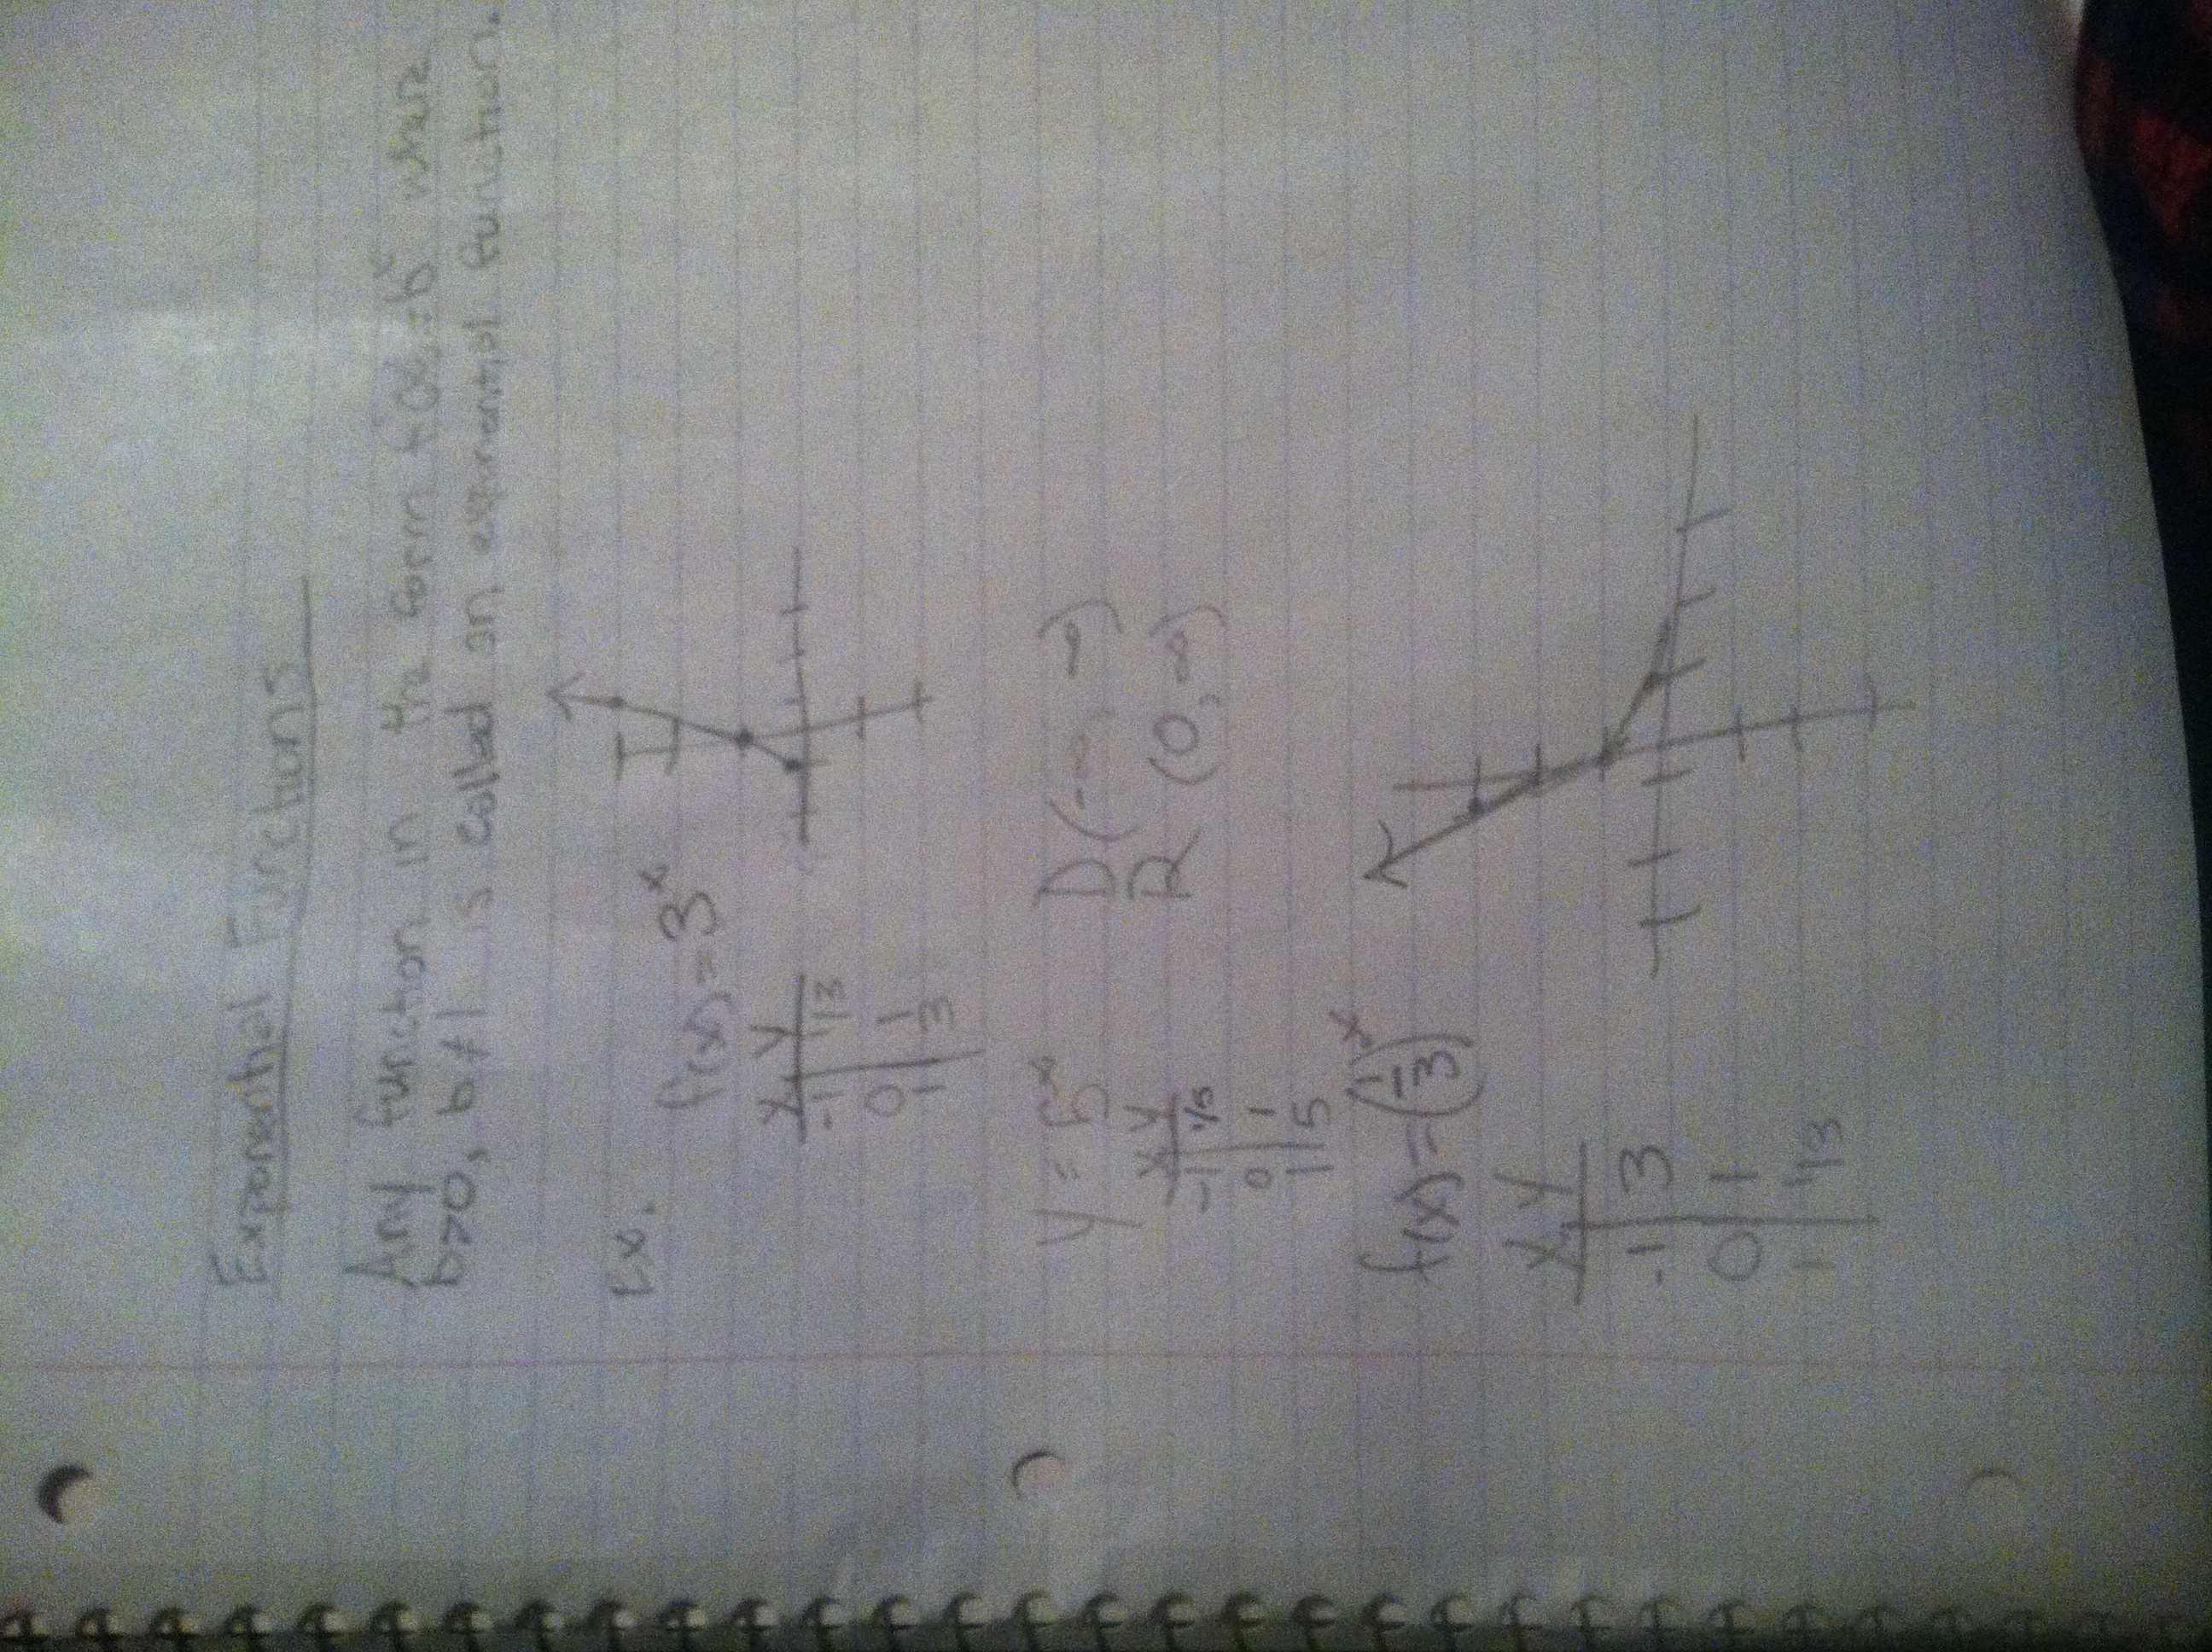 Exponential Functions
Any function in the form f(x)=b^x where
b>0, b≠1 is called an exponential function.
Ex.
f(x)=3^x
x y
-1 1/3
0 1
1 3
y = 5^x
D(-∞, ∞)
R (0,∞)
x y
-1 1/5
0 1
1 5
f(x)=(1/3)^x
x y
-1 3
0 1
1 1/3